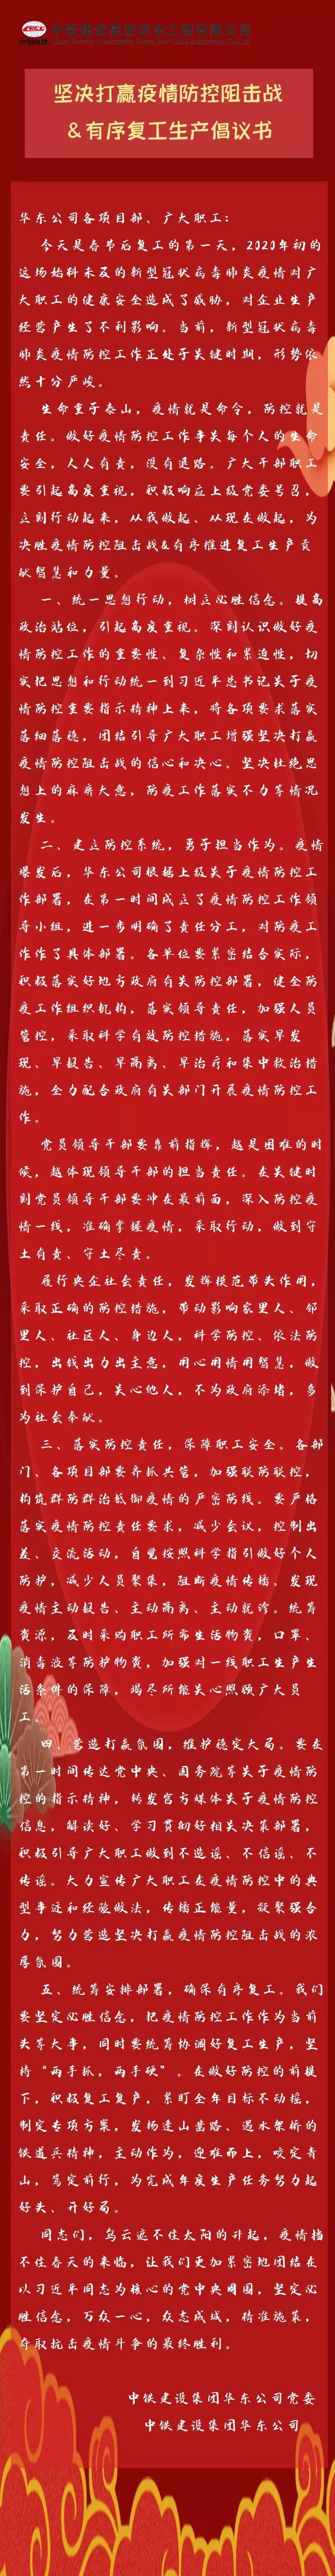 中铁建设集团华东工程有限公司
中铁建设
坚决打赢疫情防控阻击战
&有序复工生产倡议书
华东公司各项目部、广大职工：
今天是春节后复工的第一天，2020年初的
这场始料未及的新型冠状病毒肺炎疫情对广
大职工的健康安全造成了威胁，对企业生产
经营产生了不利影响。当前，新型冠状病毒
肺炎疫情防控工作正处于关键时期，形势依
然十分严峻。
生命重于泰山，疫情就是命令，防控就是
责任。做好疫情防控工作事关每个人的生命
安全，人人有责，没有退路。广大干部职工
要引起高度重视，积极响应上级党委号召，
立刻行动起来，从我做起、从现在做起，为
决胜疫情防控阻击战&有序推进复工生产贡
献智慧和力量。
一、统一思想行动，树立必胜信念。提高
政治站位，引起高度重视。深刻认识做好疫
情防控工作的重要性、复杂性和紧迫性，切
实把思想和行动统一到习近平总书记关于疫
情防控重要指示精神上来，将各项要求落实
落细落稳，团结引导广大职工增强坚决打赢
疫情防控阻击战的信心和决心。坚决杜绝思
想上的麻痹大意，防疫工作落实不力等情况
发生。
二、建立防控系统，勇于担当作为。疫情
爆发后，华东公司根据上级关于疫情防控工
作部署，在第一时间成立了疫情防控工作领
导小组，进一步明确了责任分工，对防疫工
作作了具体部署。各单位要紧密结合实际，
积极落实好地方政府有关防控部署，健全防
疫工作组织机构，落实领导责任，加强人员
管控，采取科学有效防控措施，落实早发
现、早报告、早隔离、早治疗和集中救治措
施，全力配合政府有关部门开展疫情防控工
作。
党员领导干部要靠前指挥，越是困难的时
候，越体现领导干部的担当责任。在关键时
刻党员领导干部要冲在最前面，深入防控疫
情一线，准确掌握疫情，采取行动，做到守
土有责、守土尽责。
履行央企社会责任，发挥模范带头作用，
采取正确的防控措施，带动影响家里人、邻
里人、社区人、身边人，科学防控、依法防
控，出钱出力出主意，用心用情用智慧，做
到保护自己，关心他人，不为政府添堵，多
为社会奉献。
三、落实防控责任，保障职工安全。各部
门、各项目部要齐抓共管，加强联防联控，
构筑群防群治抵御疫情的严密防线。要严格
落实疫情防控责任要求，减少会议，控制出
差、交流活动，自觉按照科学指引做好个人
防护，减少人员聚集，阻断疫情传播。发现
疫情主动报告、主动隔离、主动就诊。统筹
资源，及时采购职工所需生活物资，口罩、
消毒液等防护物资，加强对一线职工生产生
活条件的保障，竭尽所能关心照顾广大员
工。
四、营造打赢氛围，维护稳定大局。要在
第一时间传达党中央、国务院等关于疫情防
控的指示精神，转发官方媒体关于疫情防控
信息，解读好、学习贯彻好相关决策部署，
积极引导广大职工做到不造谣、不信谣、不
传谣。大力宣传广大职工在疫情防控中的典
型事迹和经验做法，传播正能量，凝聚强合
力，努力营造坚决打赢疫情防控阻击战的浓
厚氛围。
五、统筹安排部署，确保有序复工。我们
要坚定必胜信念，把疫情防控工作作为当前
头等大事，同时要统筹协调好复工生产，坚
持“两手抓，两手硬”。在做好防控的前提
下，积极复工复产，紧盯全年目标不动摇，
制定专项方案，发扬逢山凿路、遇水架桥的
铁道兵精神，主动作为，迎难而上，咬定青
山，笃定前行，为完成年度生产任务努力起
好头、开好局。
同志们，乌云遮不住太阳的升起，疫情挡
不住春天的来临，让我们更加紧密地团结在
以习近平同志为核心的党中央周围，坚定必
胜信念，万众一心，众志成城，精准施策，
夺取抗击疫情斗争的最终胜利。
中铁建设集团华东公司党委
中铁建设集团华东公司